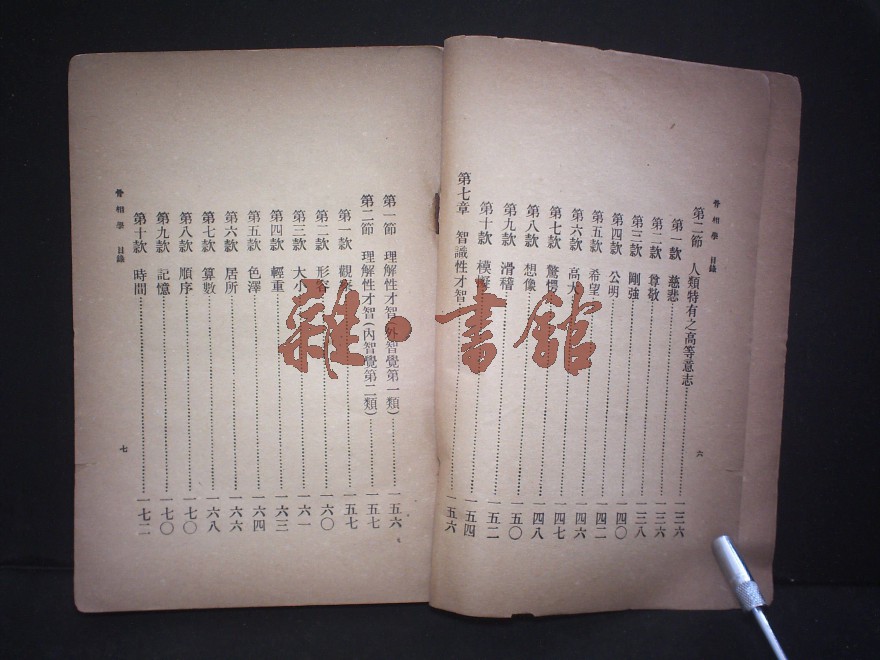 骨相學 目錄 六
第二節 人類特有之高等意志……一三六
第一款 慈悲……一三六
第二款 尊敬……一三八
第三款 剛強……一四〇
第四款 公明……一四二
第五款 希望……一四六
第六款 高大……一四七
第七款 驚愕……一四八
第八款 想像……一五〇
第九款 滑稽……一五二
第十款 模擬……一五四
第七章 智識性才智……一五六
第一節 理解性才智(外智覺第一類)……一五六
第二節 理解性才智(內智覺第二類)……一五七
第一款 觀察……一五七
第二款 形容……一六〇
第三款 大小……一六一
第四款 輕重……一六三
第五款 色澤……一六四
第六款 居所……一六六
第七款 算數……一六八
第八款 順序……一七〇
第九款 記憶……一七〇
第十款 時間……一七二
骨相學 目錄 七
雜·書館